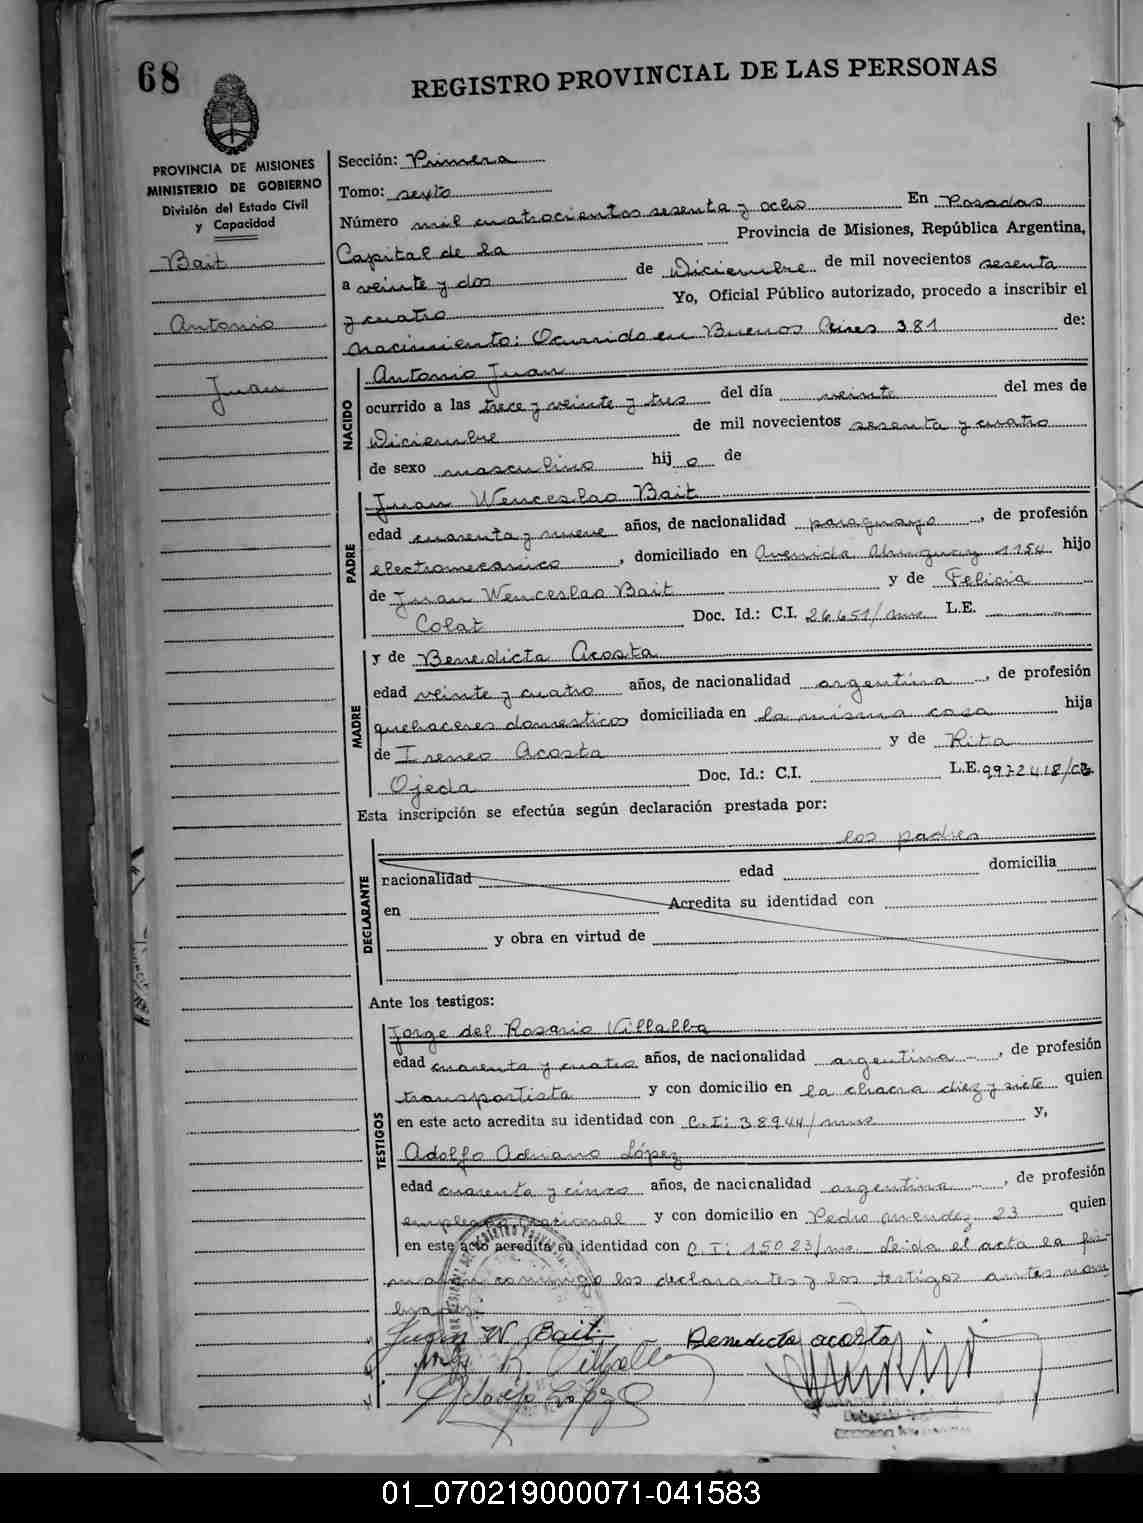 68
REGISTRO PROVINCIAL DE LAS PERSONAS
PROVINCIA DE MISIONES
MINISTERIO DE GOBIERNO
División del Estado Civil
y Capacidad
Bait
Antonio
Juan
Sección: Primera
Tomo: sexto
Número mil cuatrocientos sesenta y ocho En Posadas
Capital de la Provincia de Misiones, República Argentina,
a veinte y dos de Diciembre de mil novecientos sesenta
y cuatro Yo, Oficial Público autorizado, procedo a inscribir el
Nacimiento: Ocurrido en Buenos Aires 381 de:
NACIDO
Antonio Juan
ocurrido a las trece y veinte y tres del día veinte del mes de
Diciembre de mil novecientos sesenta y cuatro
de sexo masculino hijo de
PADRE
Juan Wenceslao Bait
edad cuarenta y nueve años, de nacionalidad paraguayo, de profesión
electromecánico, domiciliado en Avenida Uruguay 1154 hijo
de Juan Wenceslao Bait y de Felicia
Colat Doc. Id.: C.I. 26.651/mnes L.E.
MADRE
y de Benedicta Acosta
edad veinte y cuatro años, de nacionalidad argentina, de profesión
quehaceres domesticos domiciliada en la misma casa hija
de Ireneo Acosta y de Rita
Ojeda Doc. Id.: C.I. L.E. 9972418/CB
Esta inscripción se efectúa según declaración prestada por:
los padres
DECLARANTE
nacionalidad edad domicilia
en Acredita su identidad con
y obra en virtud de
Ante los testigos:
TESTIGOS
Jorge del Rosario Villalba
edad cuarenta y cuatro años, de nacionalidad argentina, de profesión
transportista y con domicilio en la chacra diez y siete quien
en este acto acredita su identidad con C.I: 38944/mnes y,
Adolfo Adriano López
edad cuarenta y cinco años, de nacionalidad argentina, de profesión
empleado nacional y con domicilio en Pedro Mendez 23 quien
en este acto acredita su identidad con C.I: 15023/ms. Leida el acta la fir-
man conmigo los declarantes y los testigos antes nom
brados.
Juan W. Bait Benedicta acosta
R. Villalba
Adolfo López
01_070219000071-041583